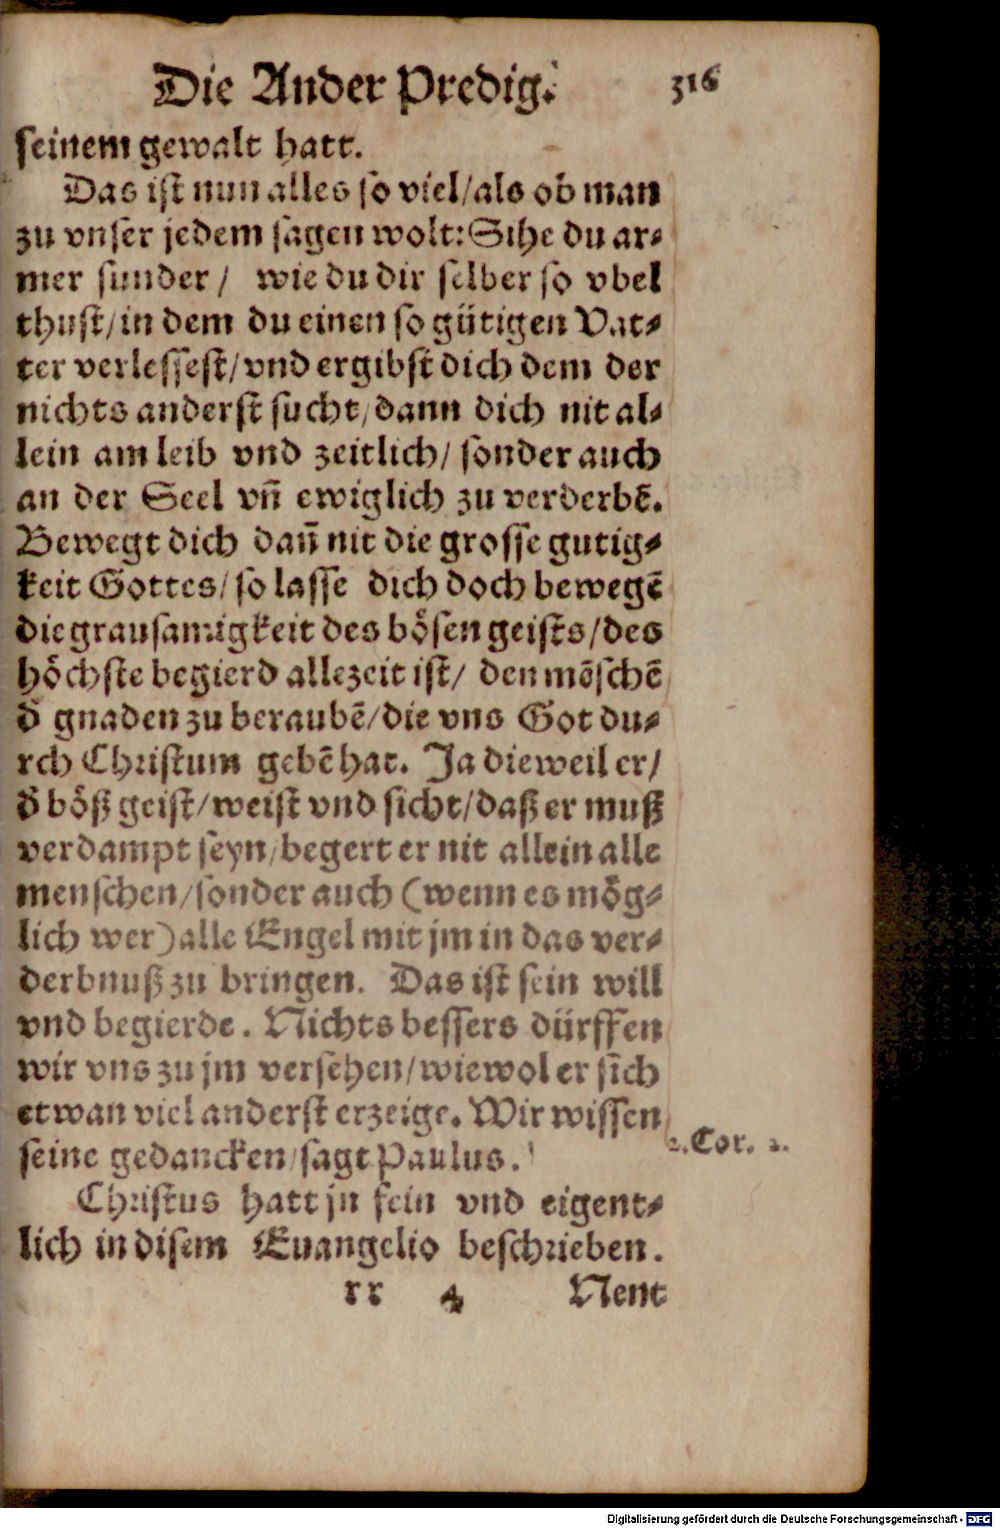 Die Ander Predig. 316
seinem gewalt hatt.
Das ist nun alles so viel/als ob man
zu vnser jedem sagen wolt: Sihe du ar-
mer sunder/ wie du dir selber so vbel
thust/in dem du einen so gütigen Vat-
ter verlessest/vnd ergibst dich dem der
nichts anderst sucht/dann dich nit al-
lein am leib vnd zeitlich/ sonder auch
an der Seel vn̄ ewiglich zu verderbē.
Bewegt dich dan̄ nit die grosse gutig-
keit Gottes/so lasse dich doch bewegē
die grausamigkeit des bösen geists/des
höchste begierd allezeit ist/ den mēschē
d̄ gnaden zu beraubē/die vns Got du-
rch Christum gebē hat. Ja dieweil er/
d̄ böß geist/weist vnd sicht/daß er muß
verdampt seyn/begert er nit allein alle
menschen/sonder auch (wenn es mög-
lich wer) alle Engel mit jm in das ver-
derbnuß zu bringen. Das ist sein will
vnd begierde. Nichts bessers dürffen
wir vns zu jm versehen/wiewol er sich
etwan viel anderst erzeige. Wir wissen
seine gedancken/sagt Paulus.
2.Cor. 2.
Christus hatt jn fein vnd eigent-
lich in disem Euangelio beschrieben.
rr 4 Nent
Digitalisierung gefördert durch die Deutsche Forschungsgemeinschaft - DFG